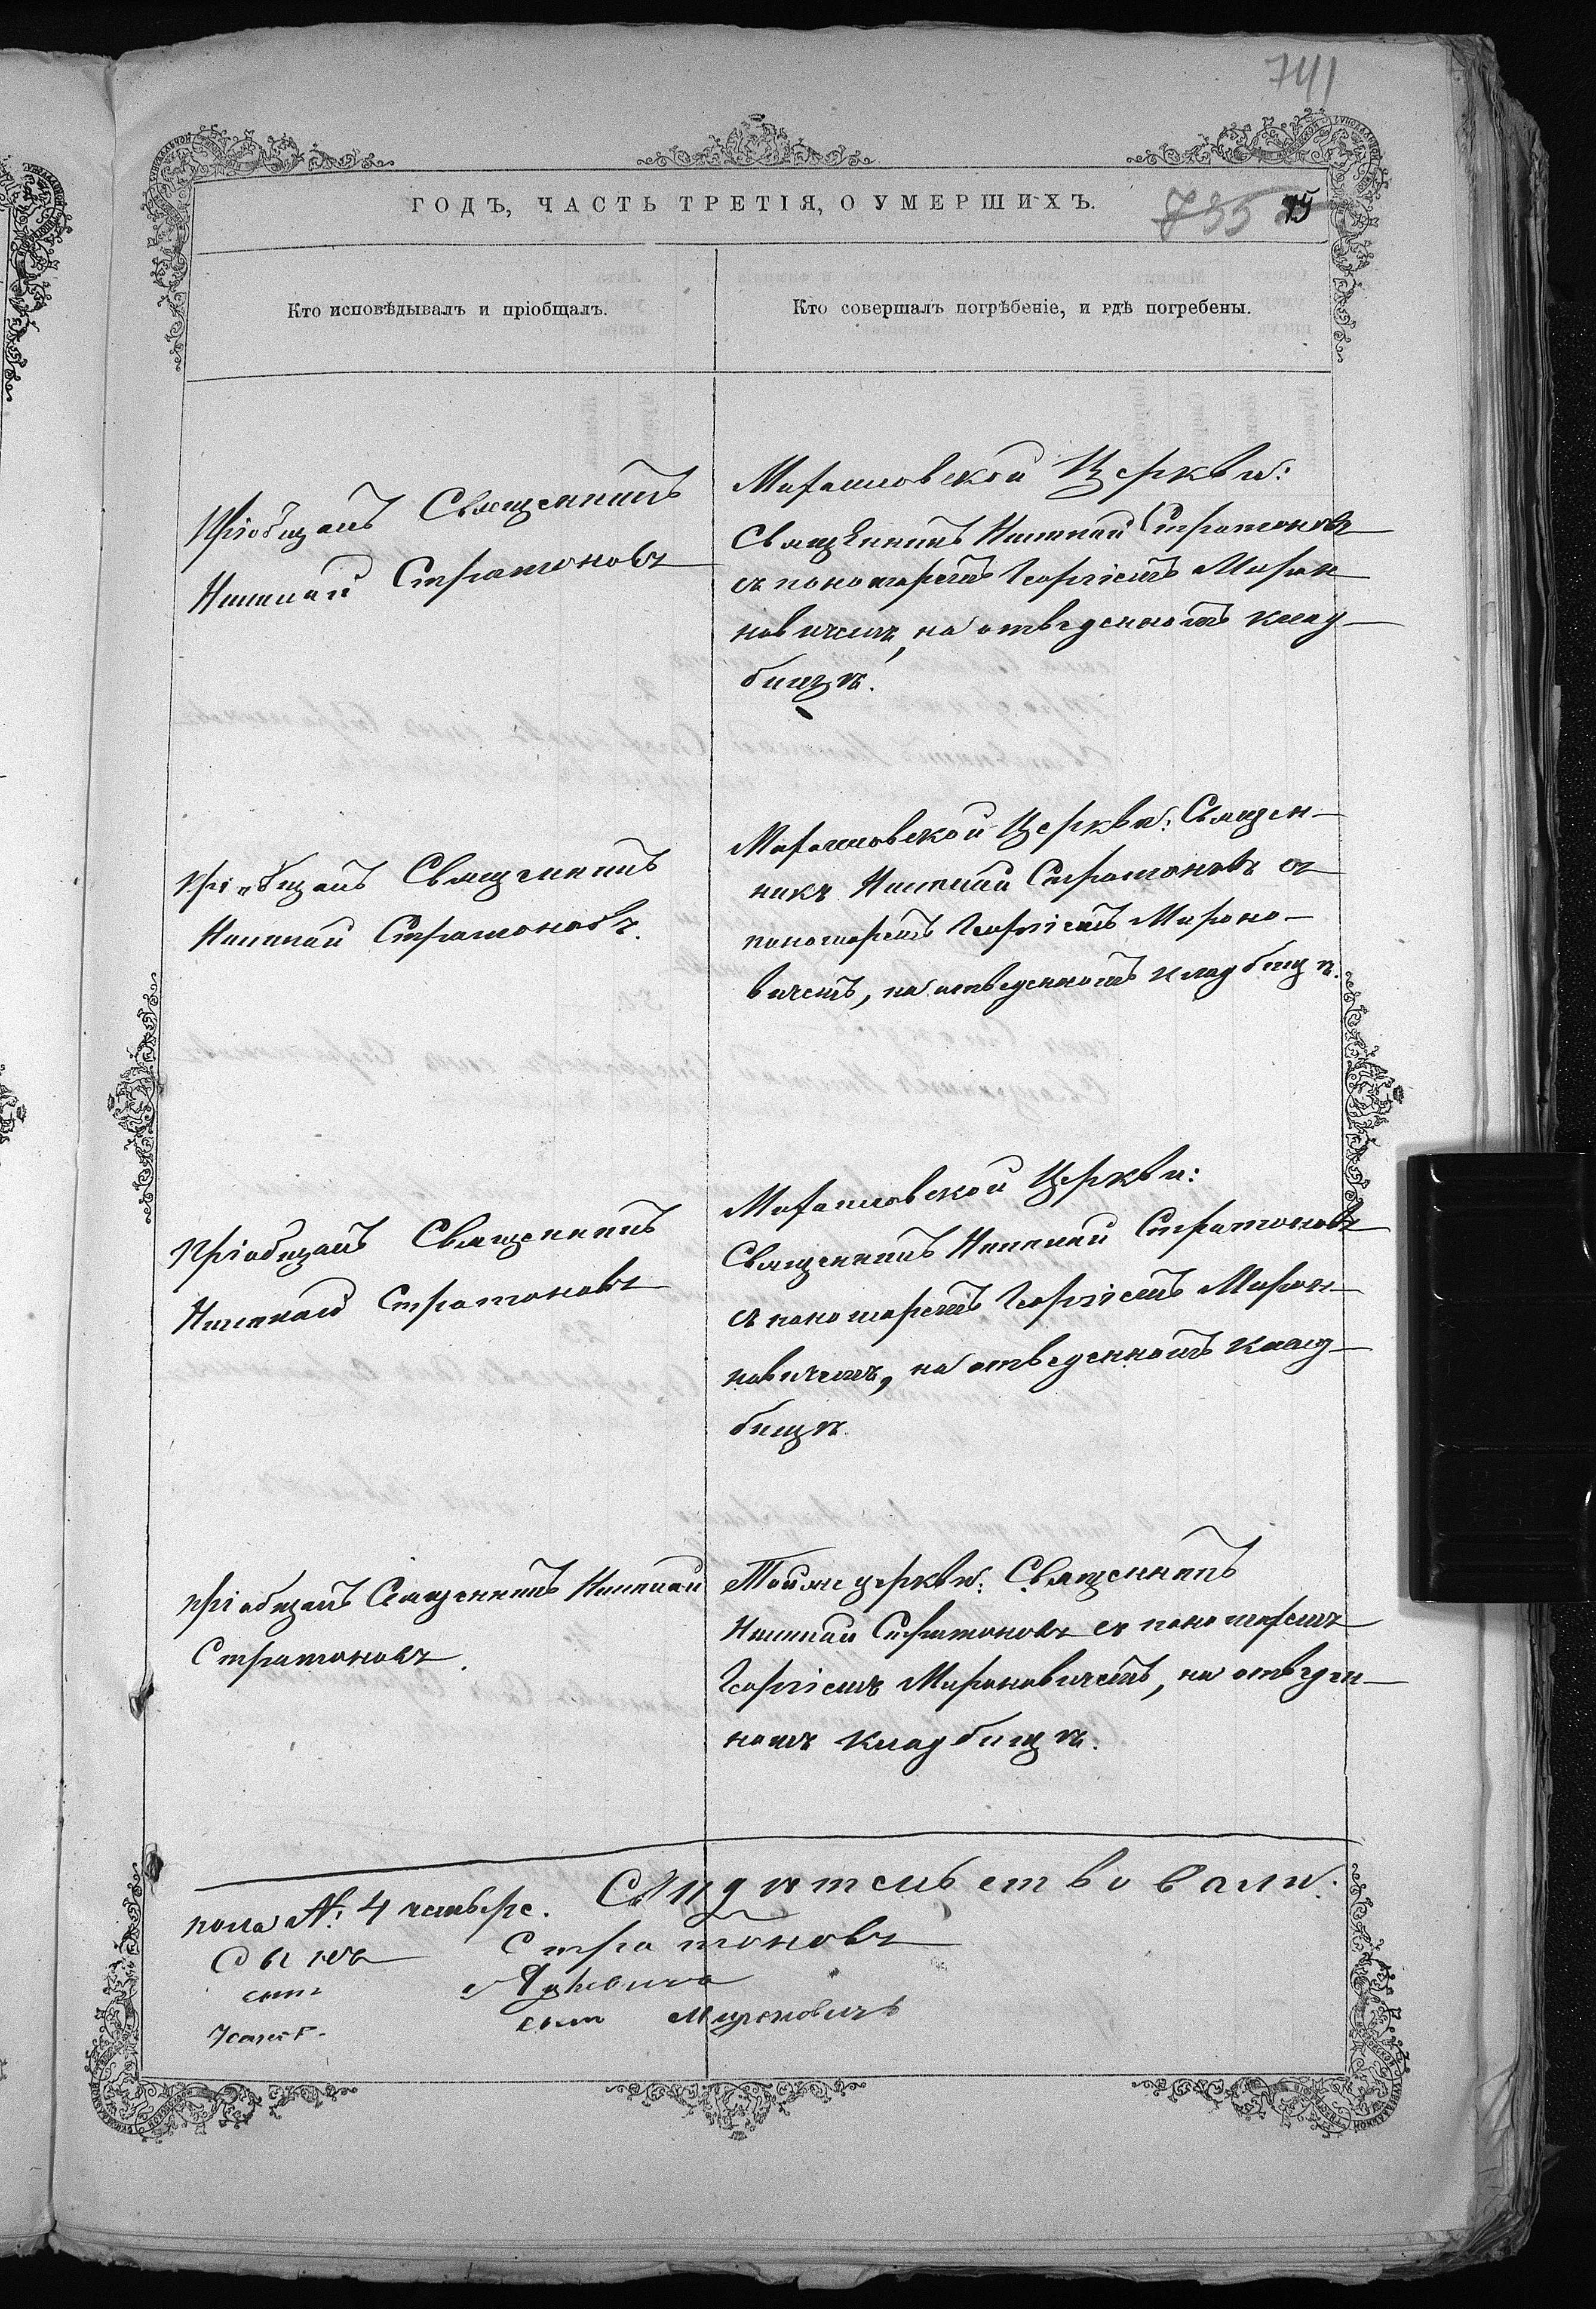 741
ГОДЪ, ЧАСТЬ ТРЕТІЯ, О УМЕРШИХЪ.
735 75
Кто исповѣдывалъ и пріобщалъ.
Кто совершалъ погрѣбеніе, и гдѣ погребены.
Пріобщалъ Священникъ
Николай Стратоновъ
Церкви:
Священникъ Николай Стратоновъ
съ пономаремъ Георгіемъ Мирон
новичемъ, на отведенномъ клад-
бищѣ.
Пріобщалъ Священникъ
Николай Стратоновъ.
Церкви: Священ-
никъ Николай Стратоновъ съ
пономаремъ Георгіемъ Мироно-
вичемъ, на отведенномъ кладбищѣ.
Пріобщалъ Священникъ
Николай Стратоновъ
Церкви:
Священникъ Николай Стратоновъ
съ пономаремъ Георгіемъ Мирон-
новичемъ, на отведенномъ клад-
бищѣ.
Пріобщалъ Священникъ Николай
Стратоновъ.
Тойже церкви: Священникъ
Николай Стратоновъ съ пономаремъ
Георгіемъ Мироновичемъ, на отведен-
номъ кладбищѣ.
пола №: 4 четыре. Свидѣтельствовали:
Сынъ Стратоновъ
сынъ
сынъ Мироновичъ